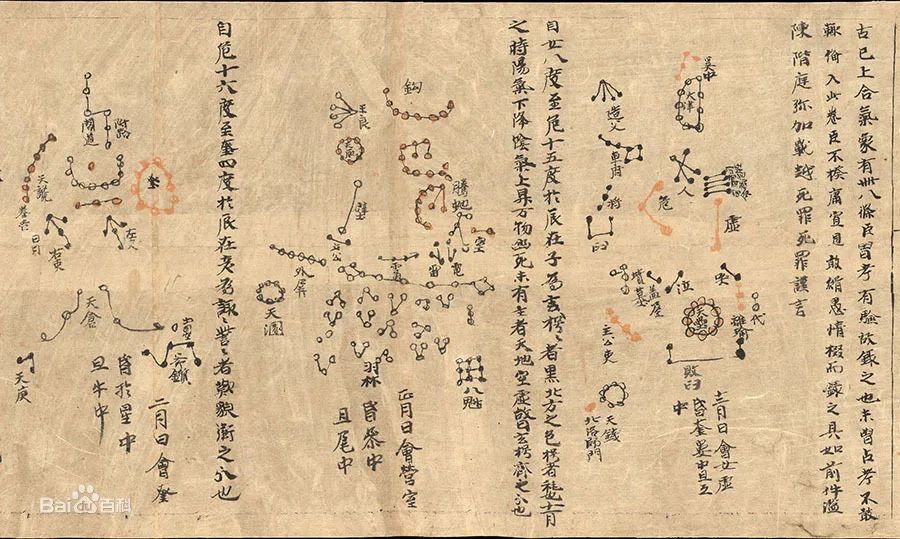 古已上合氣象有卌八條臣曾考有驗故錄之也未曾占考不敢
輒備入此卷臣不揆庸冥見敢緝愚情掇而錄之具如前件濫
陳階庭弥加戰越死罪死罪謹言
天津
造父
車府
人
危
虛
杵
臼
哭
泣
墳墓
蓋屋
天壘
離瑜
代
敗臼
土公吏
天錢
北落師門
月日會女虛
昏奎婁中旦亢
中
自女八度至危十五度於辰在子為玄枵〻者黑北方之色枵者耗也十一月
之時陽氣下降陰氣上昇万物幽死未有生者天地空虛故曰玄枵齊之分也
鈎
王良
天廐
騰虵
室
壁
土公
雷
電
外屏
天溷
羽林
八魁
正月日會營室
昏參中
旦尾中
自危十六度至奎四度於辰在亥為諏訾〻者歎貌衛之分也
閣道
附路
奎
左更
右更
天倉
鈇鑕
天庾
二月日會奎
昏於星中
旦牛中
Baidu百科